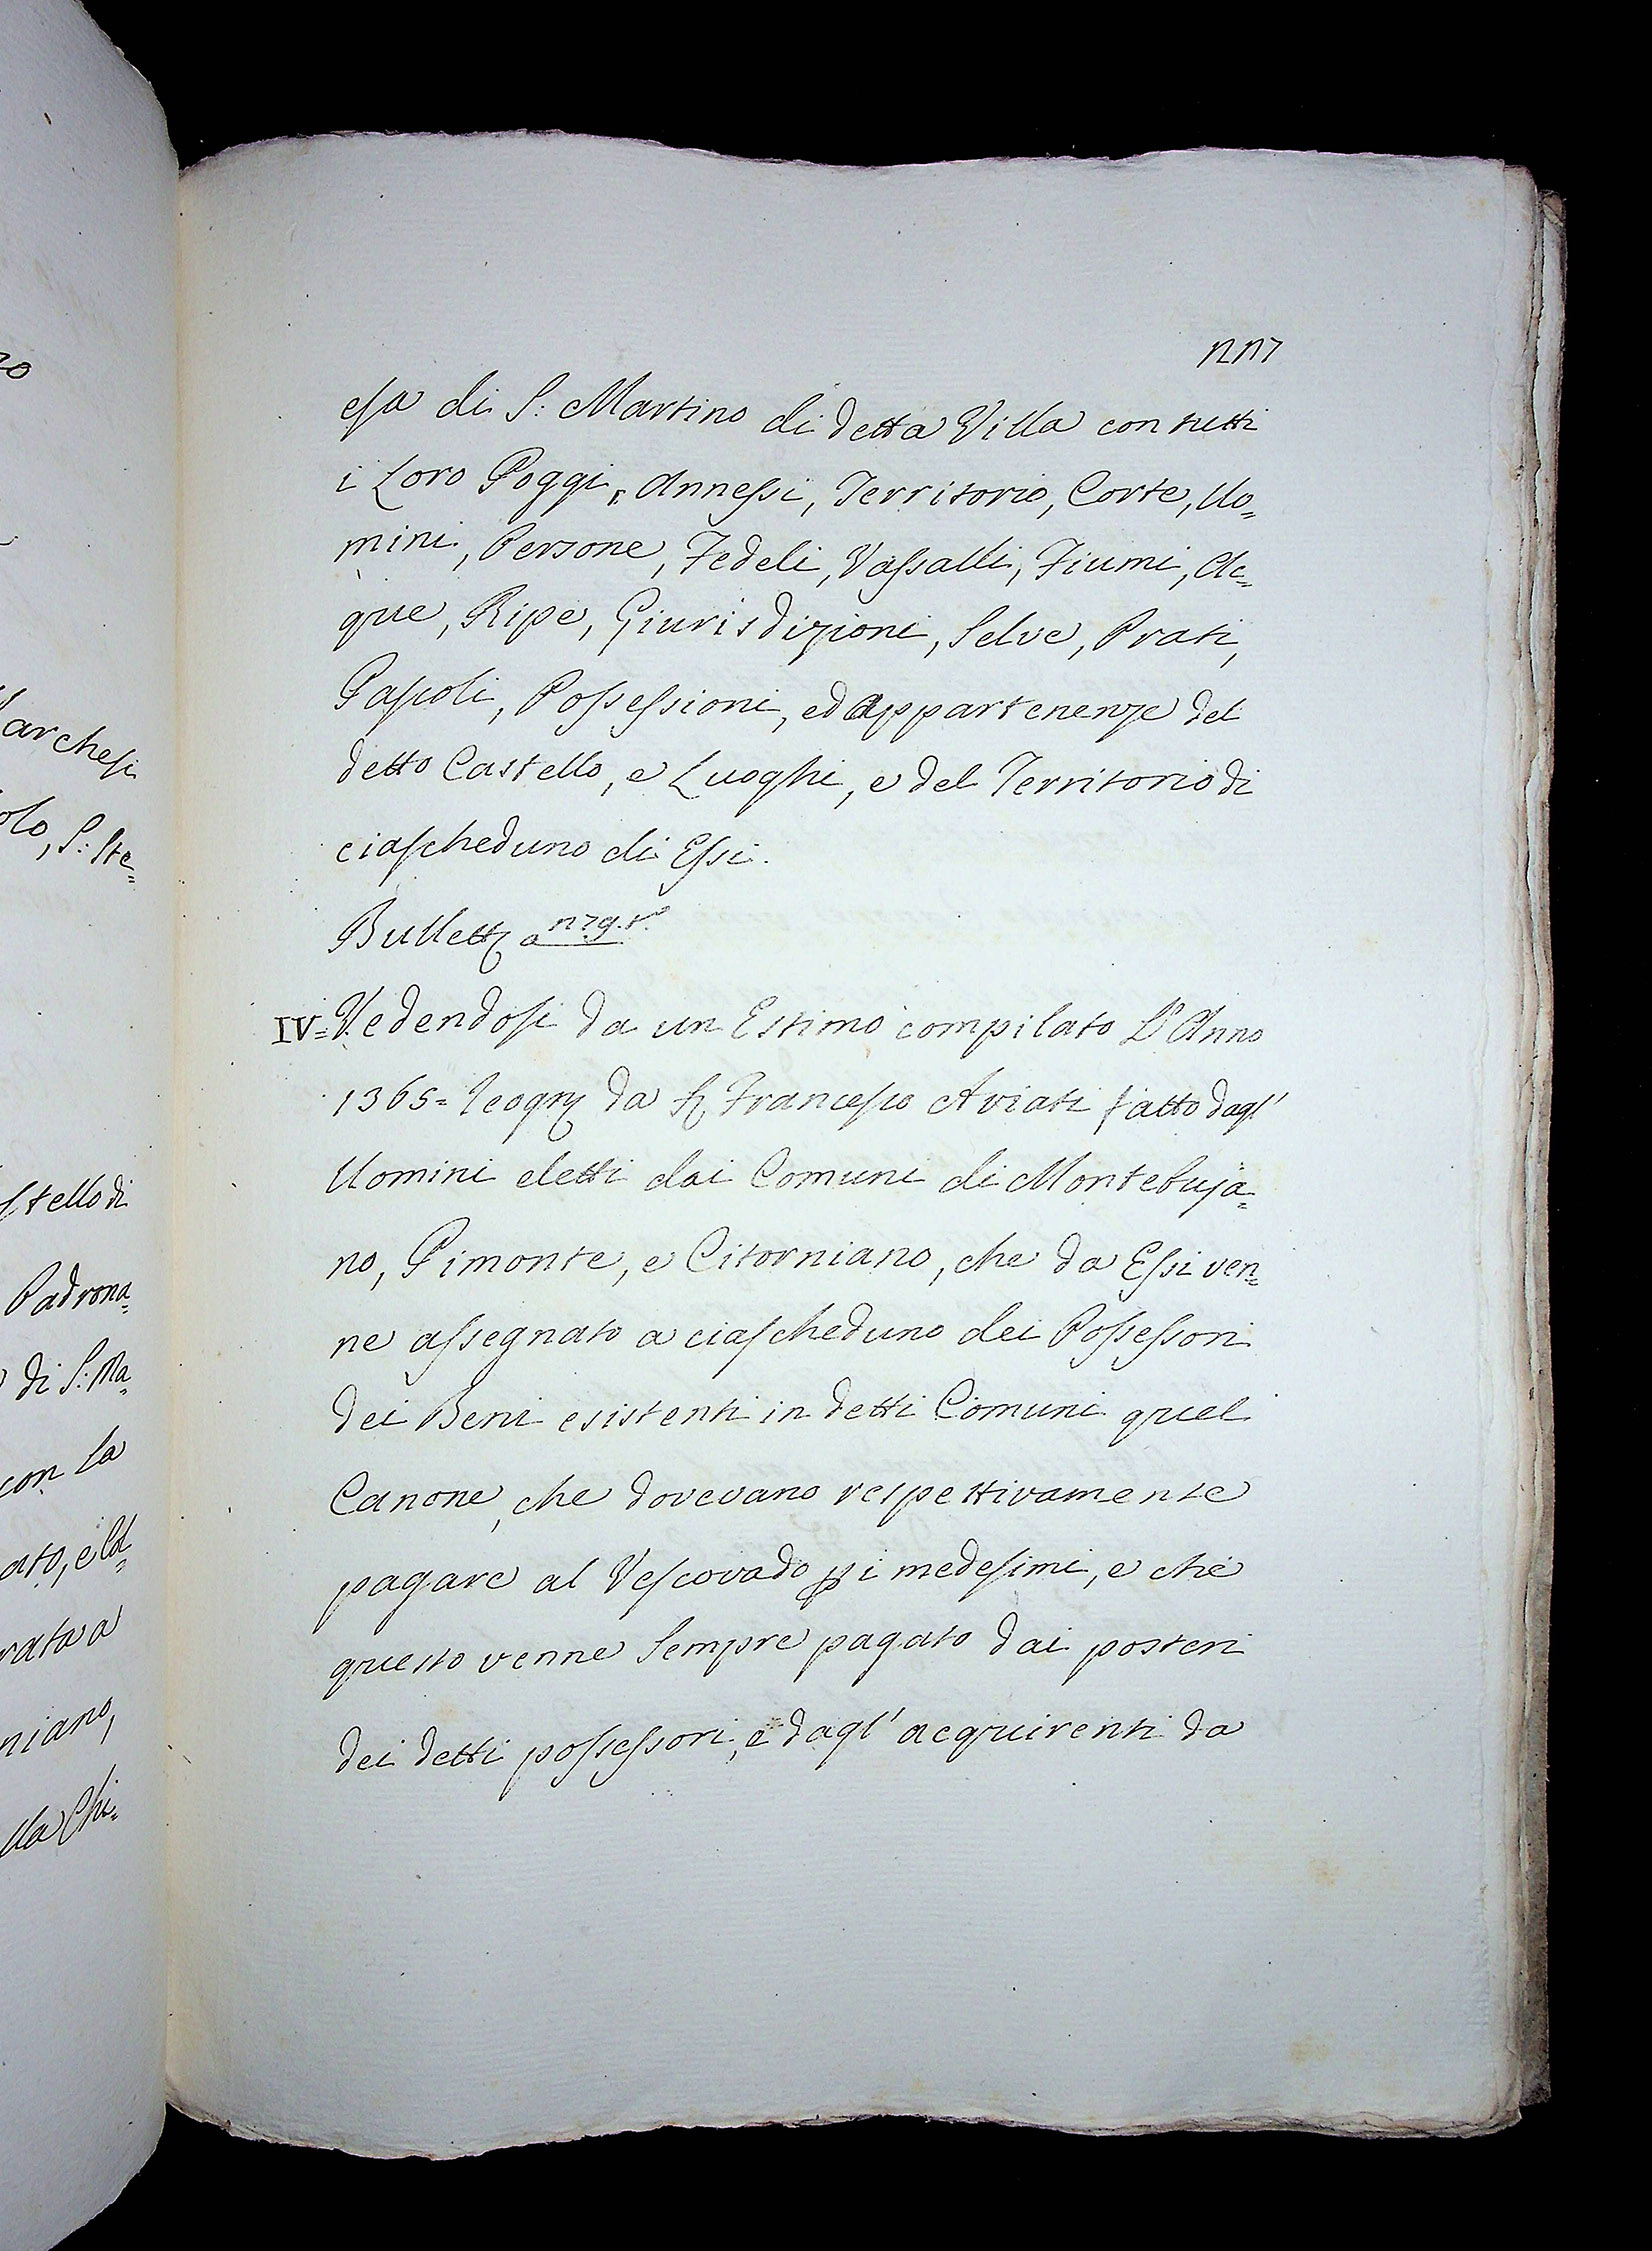 esa di S: Martino di detta Villa con tutti
i Loro Poggi, Annessi, Territorio, Corte, Uo=
mini, Persone, Fedeli, Vassalli, Fiumi, Ac=
que, Ripe, Giurisdizioni, Selve, Prati,
Pascoli, Possessioni, ed Appartenenze del
detto Castello, e Luoghi, e del Territorio di
ciascheduno di Essi.
Bullett a
IV= Vedendosi da un Estimo compilato L'Anno
1365= da Francesco Aviati fatto dagl'
Uomini eletti dai Comuni di Montebuja=
no, Pimonte, e Citorniano, che da Essi ven=
ne assegnato a ciascheduno dei Possessori
dei Beni esistenti in detti Comuni quel
Canone, che dovevano respettivamente
pagare al Vescovado p i medesimi, e che
questo venne sempre pagato dai posteri
dei detti possessori, e dagl' acquirenti da
archesi
olo, S: Ste=
stello di
Padrona=
di S: Ma=
con la
ato, e
rata a
niano,
lla Chi=